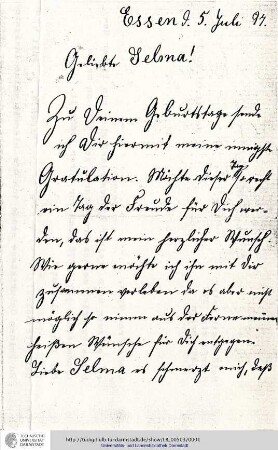 Essen d. 5. Juli 94.
Geliebte Selma!
Zu Deinem Geburtstage sende
ich Dir hiermit meine innigste
Gratulation. Möchte dieser Tag so recht
ein Tag der Freude für Dich wer-
den, das ist mein herzlicher Wunsch.
Wie gerne möchte ich ihn mit dir
zusammen verleben da es aber nicht
möglich so nimm aus der Ferne meine
heißen Wünsche für Dich entgegen.
Liebe Selma es schmerzt mich, daß
TECHNISCHE
UNIVERSITÄT
DARMSTADT
Universitäts- und Landesbibliothek Darmstadt